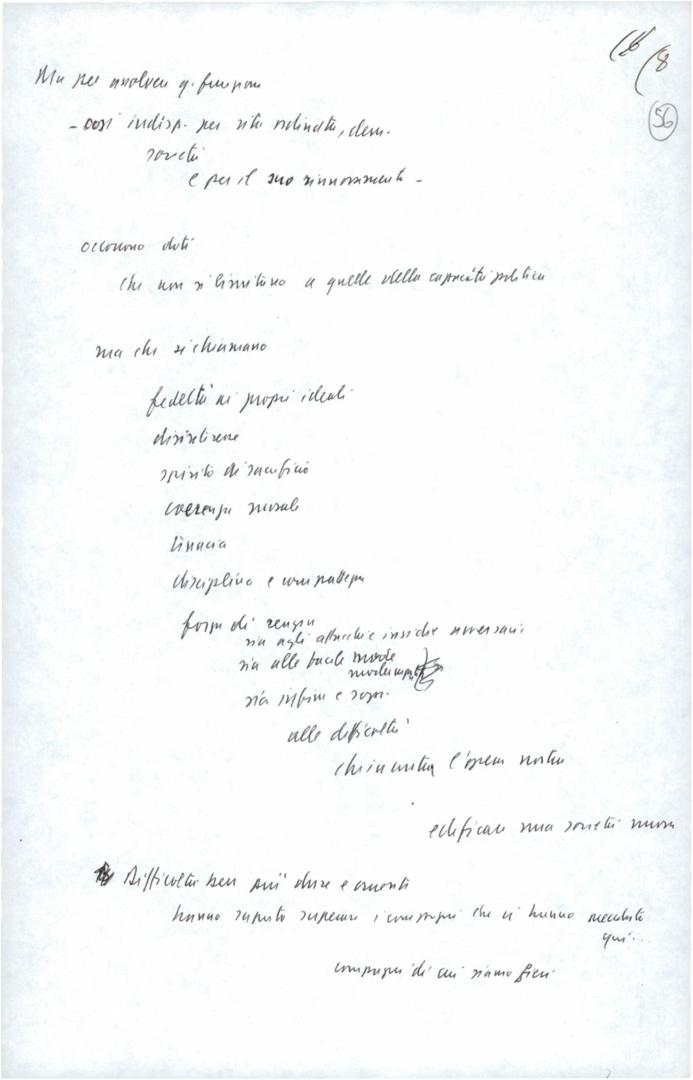 18
56
Ma per assolvere q. funzioni
- così indisp. per vita ordinata, dem.
società
e per il suo rinnovamento -
occorrono doti
che non si limitano a quelle della capacità politica
ma che si chiamano
fedeltà ai propri ideali
disinteresse
spirito di sacrificio
coerenza morale
tenacia
disciplina e compattezza
forza di reagire
sia agli attacchi e insidie avversarie
sia alle facili mode
sia infine e sopr.
alle difficoltà
che incontra l'opera nostra
edificare una società nuova
Difficoltà ben più dure e cruente
hanno saputo superare i compagni che ci hanno preceduto
qui...
compagni di cui siamo fieri